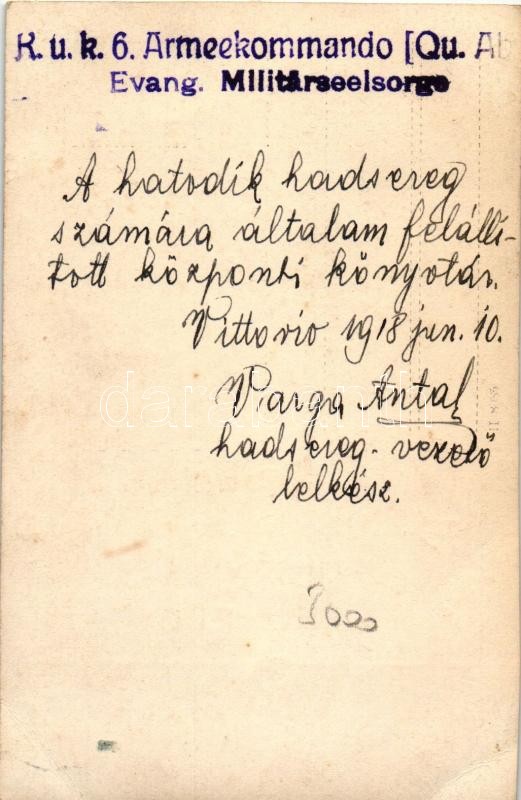 K. u. k. 6. Armeekommando [Qu. Ab
Evang. Militärseelsorge
A hatodik hadsereg
számára általam felállí-
tott központi könyvtár.
Vittorio 1918 jun. 10.
Varga Antal
hadsereg-vezető
lelkész.
3000